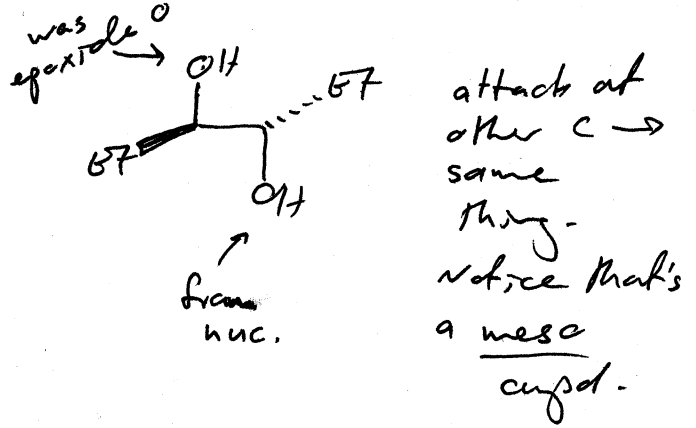 was
epoxide O
OH
Et
Et
OH
from
nuc.
attack at
other C →
same
thing.
Notice that's
a meso
cmpd.